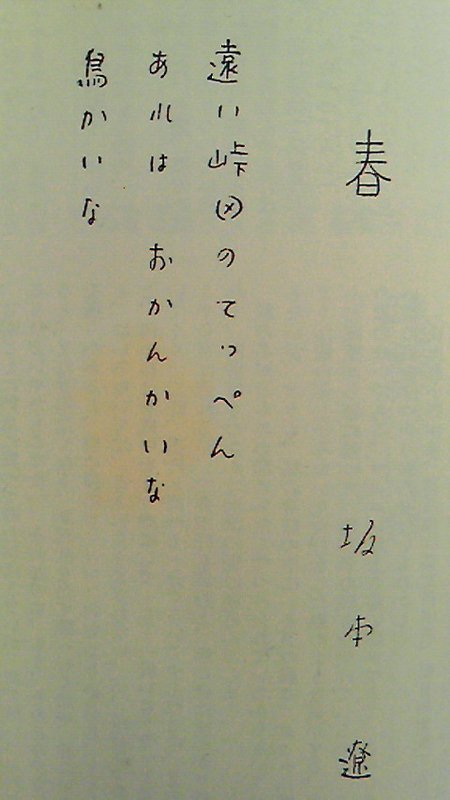 春
坂本遼
遠い峠田のてっぺん
あれは おかんかいな
鳥かいな